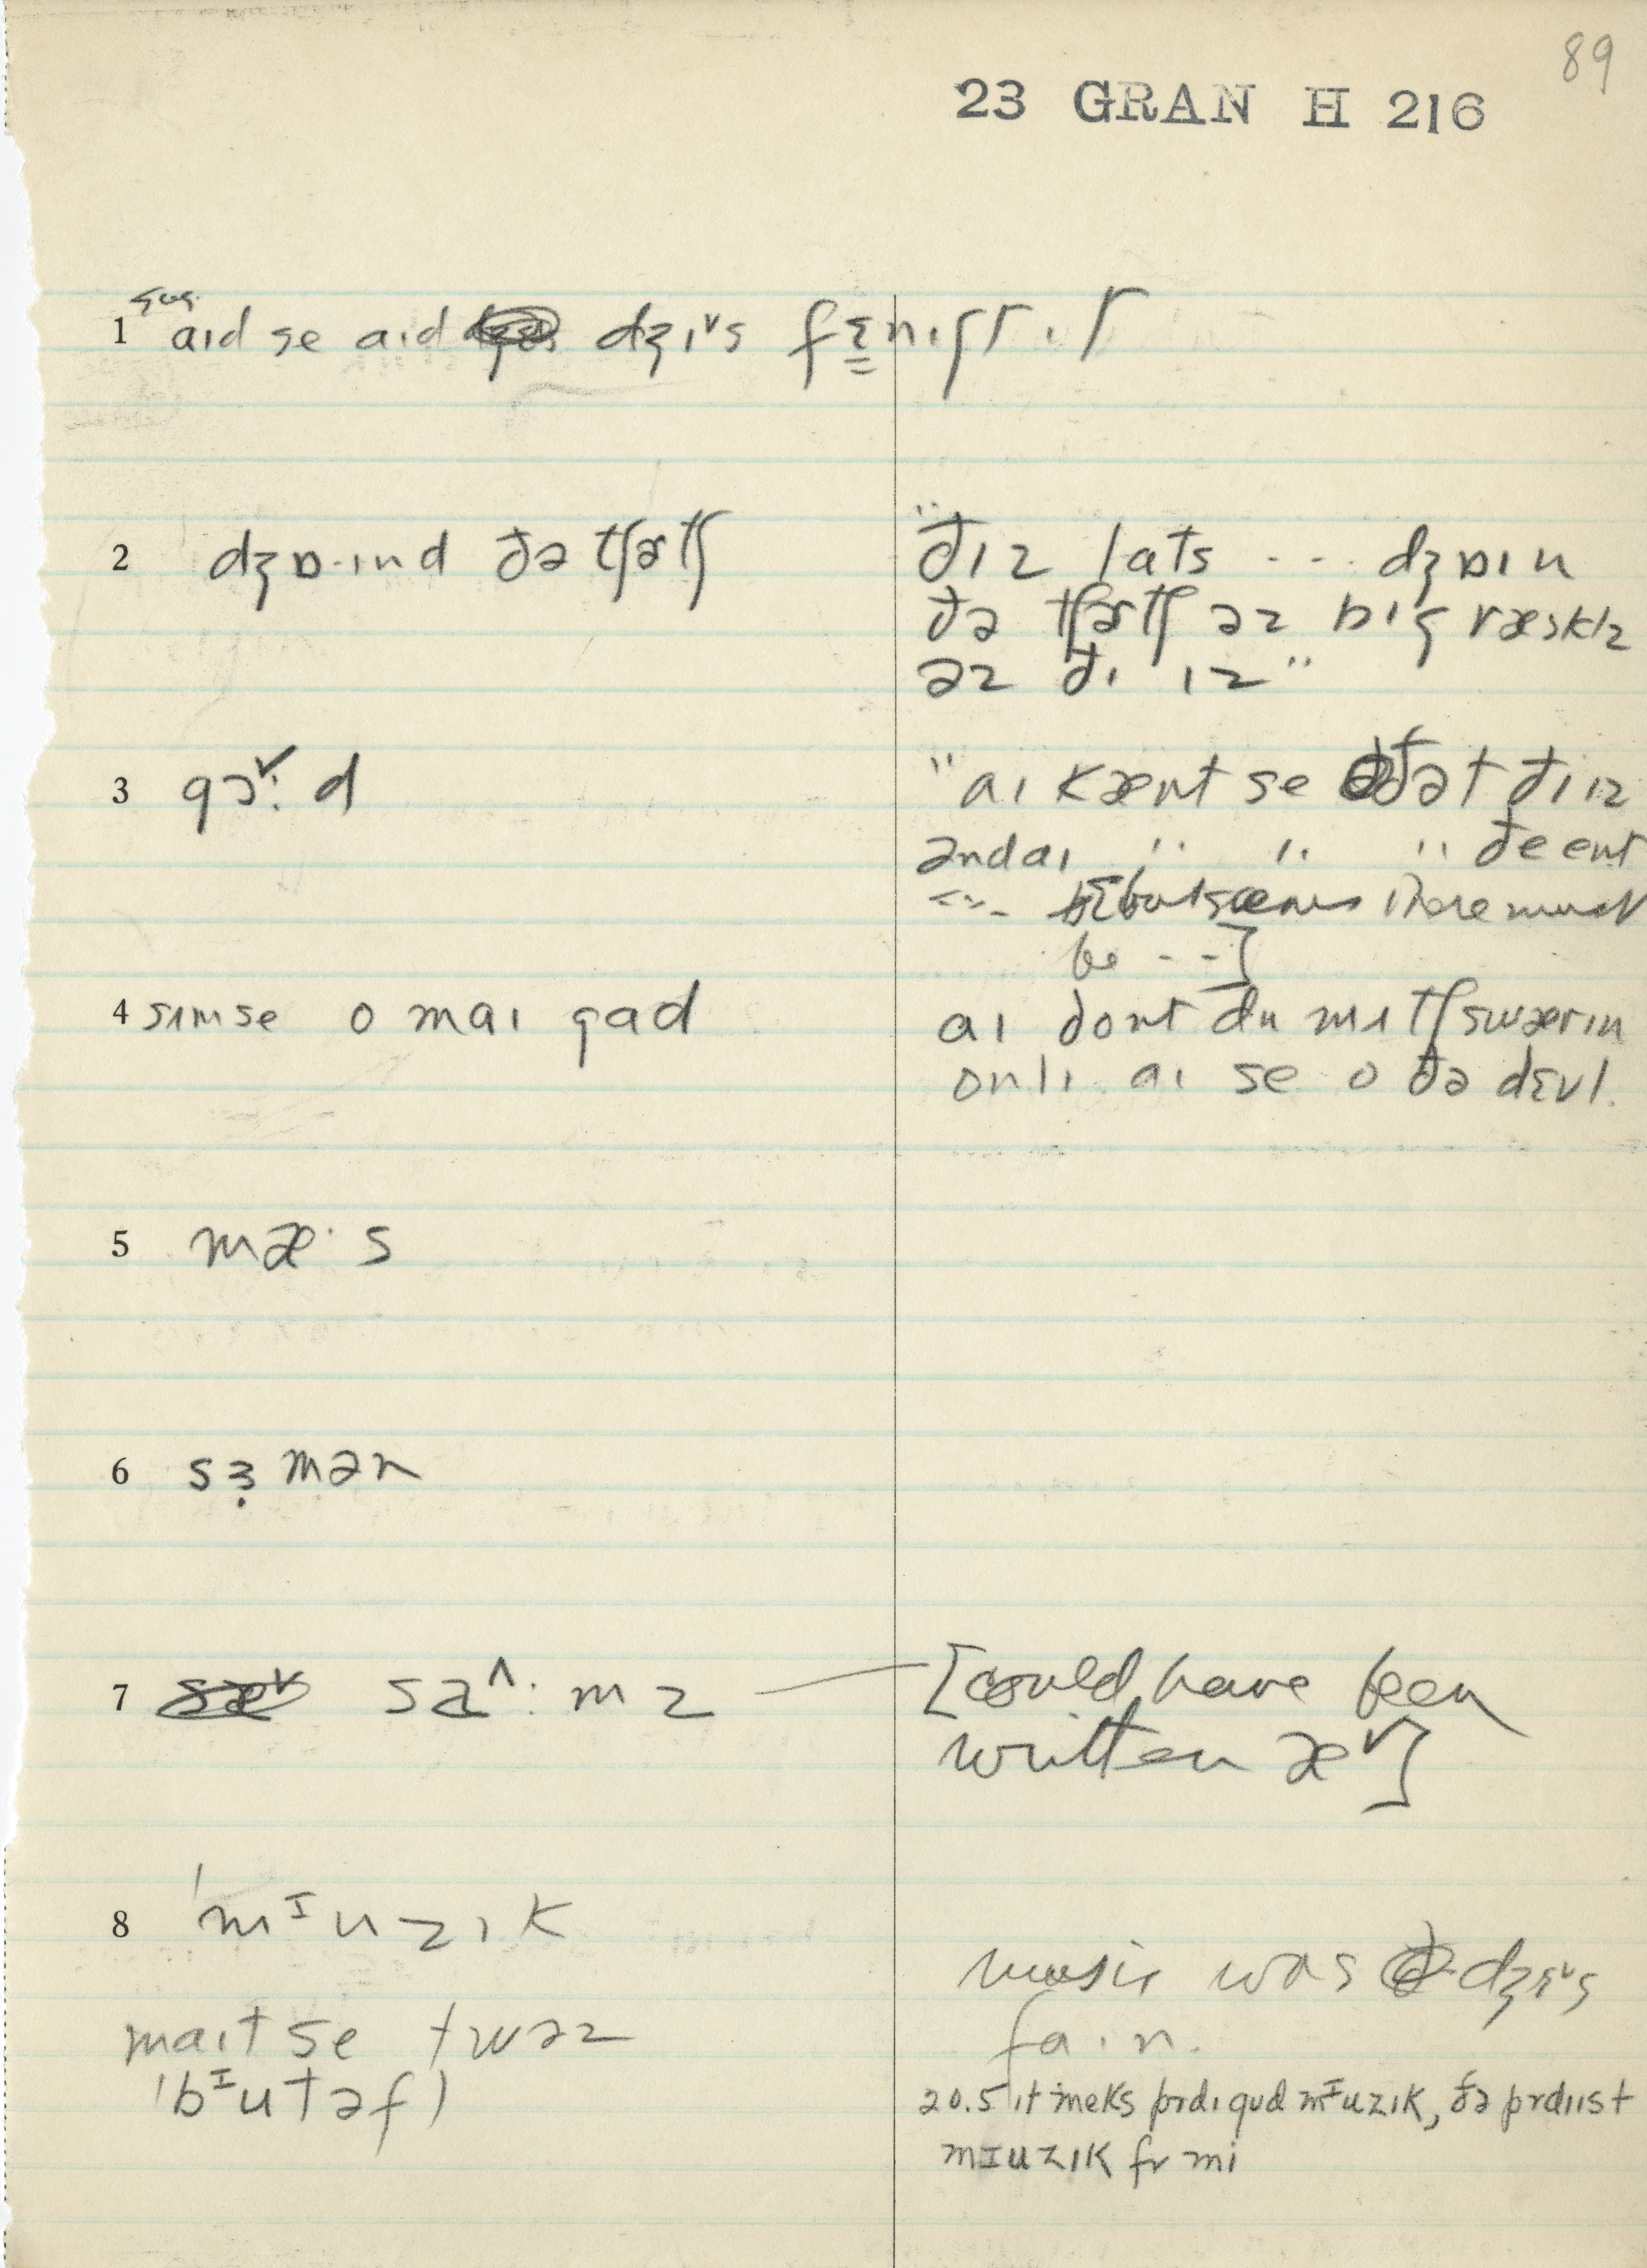 89
23 GRAN H 216
sug.
1 aɪd se aɪd dʒɪˇs fɛnɪʃt ɪt
2 dʒɒ·ɪnd ðə tʃɚtʃ
"ðɪz lats --- dʒɒɪn
ðə tʃɚtʃ əz bɪg ræsklz
əz ðɪ ɪz"
3 gɔˇ: d
"aɪ kænt se ðət ðɪ ɪz
əndaɪ " " " ðe ent
--- but seems there must
be --]
4 sɪmse o maɪ gad
aɪ dont du mɪtʃ swærɪn
onlɪ aɪ se o ðə dɛvl.
5 mæ· s
6 sɜ̣mən
7 sa^: mz
[could have been
written æˇ]
8 'mᴵuzɪk
music was dʒɪˇs
fa·ɪn.
maɪt se twəz
'bᴵutəfl
20.5 ɪt meks prdɪ gud mᴵuzɪk, ðə prdɪɪst
mᴵuzɪk fr mi